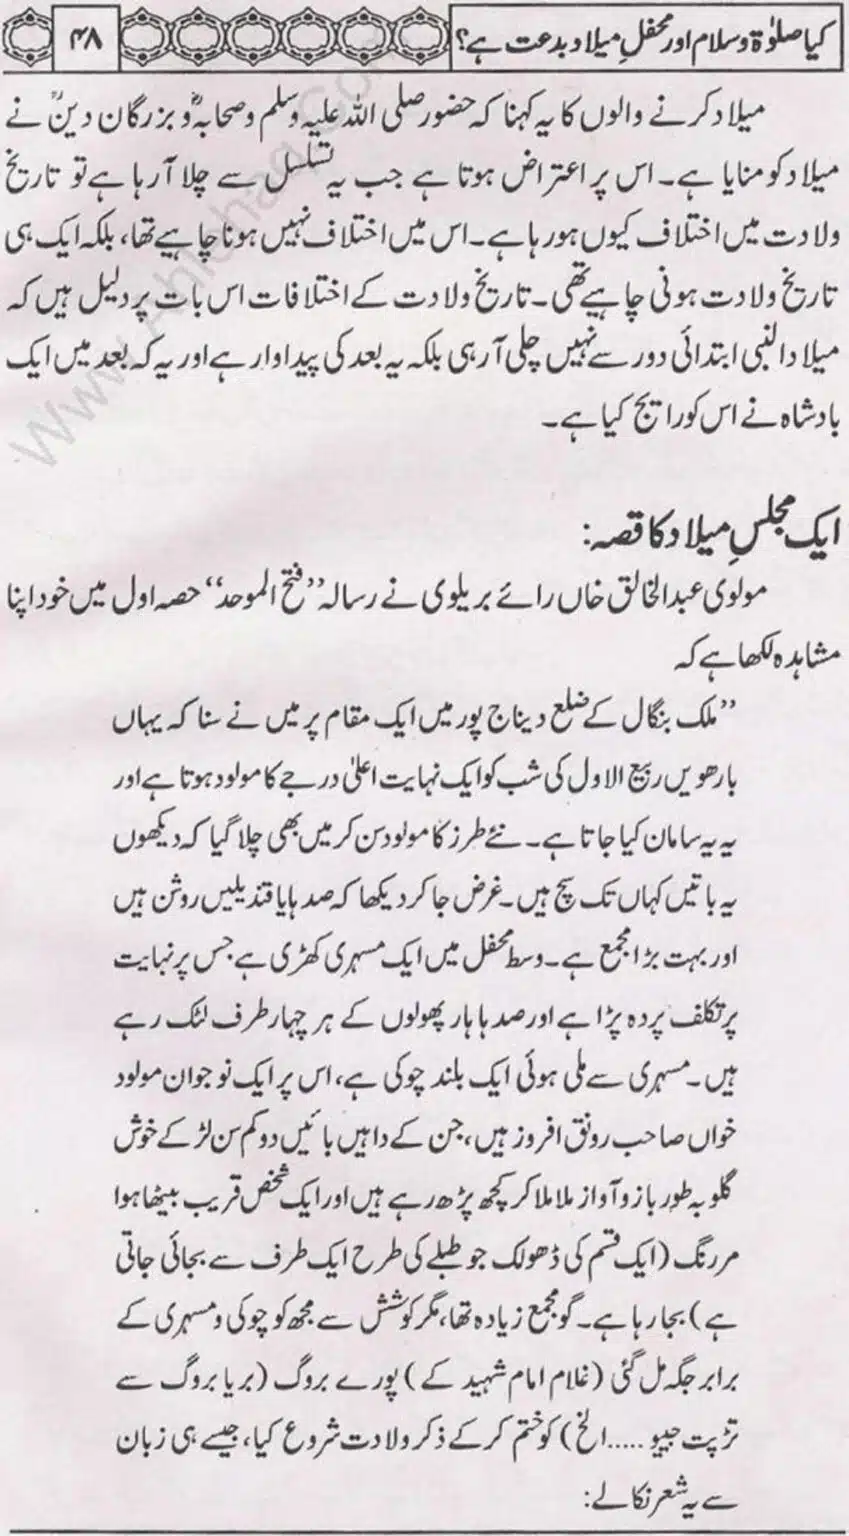 کیا صلوٰۃ و سلام اور محفلِ میلاد بدعت ہے؟
۴۸
میلاد کرنے والوں کا یہ کہنا کہ حضور صلی اللہ علیہ وسلم و صحابہؓ و بزرگان دینؒ نے
میلاد کو منایا ہے۔ اس پر اعتراض ہوتا ہے جب یہ تسلسل سے چلا آ رہا ہے تو تاریخ
ولادت میں اختلاف کیوں ہو رہا ہے۔ اس میں اختلاف نہیں ہونا چاہیے تھا، بلکہ ایک ہی
تاریخ ولادت ہونی چاہیے تھی۔ تاریخ ولادت کے اختلافات اس بات پر دلیل ہیں کہ
میلاد النبی ابتدائی دور سے نہیں چلی آ رہی بلکہ یہ بعد کی پیداوار ہے اور یہ کہ بعد میں ایک
بادشاہ نے اس کو رایج کیا ہے۔
ایک مجلسِ میلاد کا قصہ:
مولوی عبدالخالق خاں رائے بریلوی نے رسالہ ”فتح الموحد“ حصہ اول میں خود اپنا
مشاہدہ لکھا ہے کہ
”ملک بنگال کے ضلع دیناج پور میں ایک مقام پر میں نے سنا کہ یہاں
بارھویں ربیع الاول کی شب کو ایک نہایت اعلیٰ درجے کا مولود ہوتا ہے اور
یہ یہ سامان کیا جاتا ہے۔ نئے طرز کا مولود سن کر میں بھی چلا گیا کہ دیکھوں
یہ باتیں کہاں تک سچ ہیں۔ غرض جا کر دیکھا کہ صدہا یا قندیلیں روشن ہیں
اور بہت بڑا مجمع ہے۔ وسط محفل میں ایک مسہری کھڑی ہے جس پر نہایت
پرتکلف پردہ پڑا ہے اور صدہا ہار پھولوں کے ہر چہار طرف لٹک رہے
ہیں۔ مسہری سے ملی ہوئی ایک بلند چوکی ہے، اس پر ایک نوجوان مولود
خواں صاحب رونق افروز ہیں، جن کے داہیں بائیں دو کم سن لڑکے خوش
گلو بہ طور بازو آواز ملا ملا کر کچھ پڑھ رہے ہیں اور ایک شخص قریب بیٹھا ہوا
مررنگ (ایک قسم کی ڈھولک جو طبلے کی طرح ایک طرف سے بجائی جاتی
ہے) بجا رہا ہے۔ گو مجمع زیادہ تھا، مگر کوشش سے مجھ کو چوکی و مسہری کے
برابر جگہ مل گئی (غلام امام شہید کے) پورے بروگ (بریا بروگ سے
تڑپت جیو ..... الخ) کو ختم کر کے ذکر ولادت شروع کیا، جیسے ہی زبان
سے یہ شعر نکالے:
Www.Ahlehaq.Com